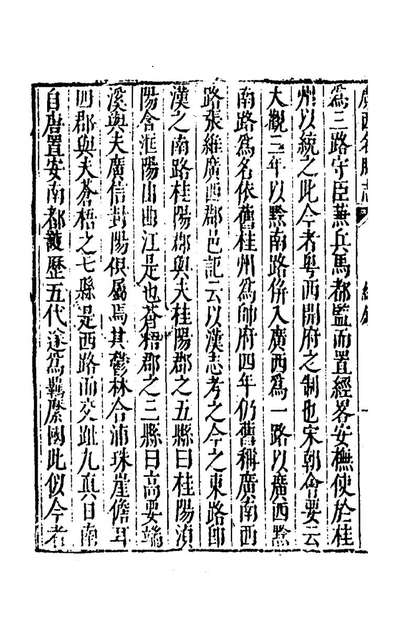 廣西名勝志
爲三路守臣兼兵馬都監而置經畧安撫使於桂
州以統之此今者粤西開府之制也宋朝會要云
大觀三年以黔南路併入廣西爲一路以廣西黔
南路爲名依舊桂州爲帥府四年仍舊稱廣南西
路張維廣西郡邑記云以漢志考之今之東路即
漢之南路桂陽郡與夫桂陽郡之五縣曰桂陽湞
陽含洭陽山曲江是也蒼梧郡之三縣曰高要端
溪與夫廣信封陽俱屬焉其鬱林合浦珠崖儋耳
四郡與夫蒼梧之七縣是西路而交趾九真日南
自唐置安南都護歷五代遂爲羈縻國此似今者